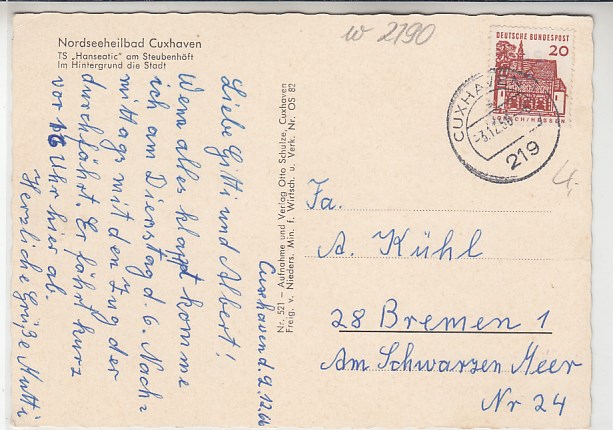 Nordseeheilbad Cuxhaven
TS „Hanseatic" am Steubenhöft
Im Hintergrund die Stadt
w 2190
DEUTSCHE BUNDESPOST
20
CUXHAVEN
219
4,-
Cuxhaven d. 2.12.66
Liebe Gitti und Albert!
Wenn alles klappt komme
ich am Dienstag d. 6. Nach=
mittags mit den Zug der
durchfährt. Er fährt kurz
vor 16 Uhr hier ab.
Herzliche Grüße Mutti
Nr. 521 – Aufnahme und Verlag Otto Schulze, Cuxhaven
Freig. v. Nieders. Min. f. Wirtsch. u. Verk. Nr. OS 82
Fa.
A. Kühl
28 Bremen 1
Am Schwarzen Meer
Nr 24